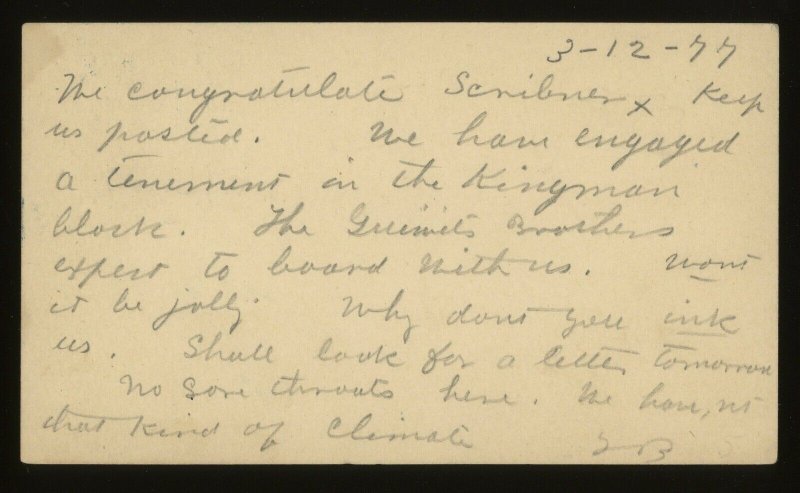 3-12-77
We congratulate Scribner x Keep
us posted. We have engaged
a tenement in the Kingman
block. The Brothers
expect to board with us. Wont
it be jolly. Why dont you ink
us. Shall look for a letter tomorrow
No sore throats here. We have nt
that kind of climate